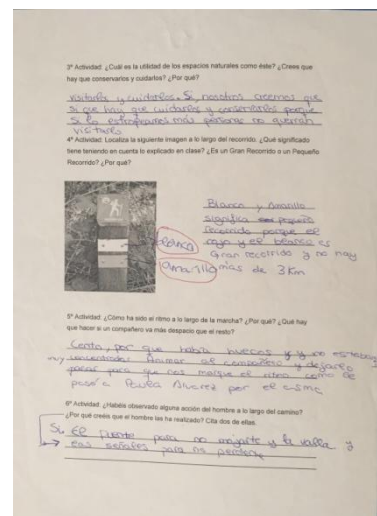 3ª Actividad: ¿Cuál es la utilidad de los espacios naturales como éste? ¿Crees que
hay que conservarlos y cuidarlos? ¿Por qué?
visitarlos y cuidarlos. Si, nosotros creemos que
si que hay que cuidarlos y conservarlos porque
si lo estropeamos más personas no querrán
visitarlo
4ª Actividad: Localiza la siguiente imagen a lo largo del recorrido. ¿Qué significado
tiene teniendo en cuenta lo explicado en clase? ¿Es un Gran Recorrido o un Pequeño
Recorrido? ¿Por qué?
Blanco y Amarillo
significa pequeño
recorrido porque el
rojo y el blanco es
Gran recorrido y no hay
más de 3 Km
Blanco
Amarillo
5ª Actividad: ¿Cómo ha sido el ritmo a lo largo de la marcha? ¿Por qué? ¿Qué hay
que hacer si un compañero va más despacio que el resto?
Lenta, por que había huecos y no estabamos
muy concentrados Animar al compañero y dejarlo
pasar para que nos marque el ritmo como le
paso a Paula Alvarez por el asma
6ª Actividad: ¿Habéis observado alguna acción del hombre a lo largo del camino?
¿Por qué creéis que el hombre las ha realizado? Cita dos de ellas.
Si, El puente para no mojarte y la valla y
las señales para no perderte